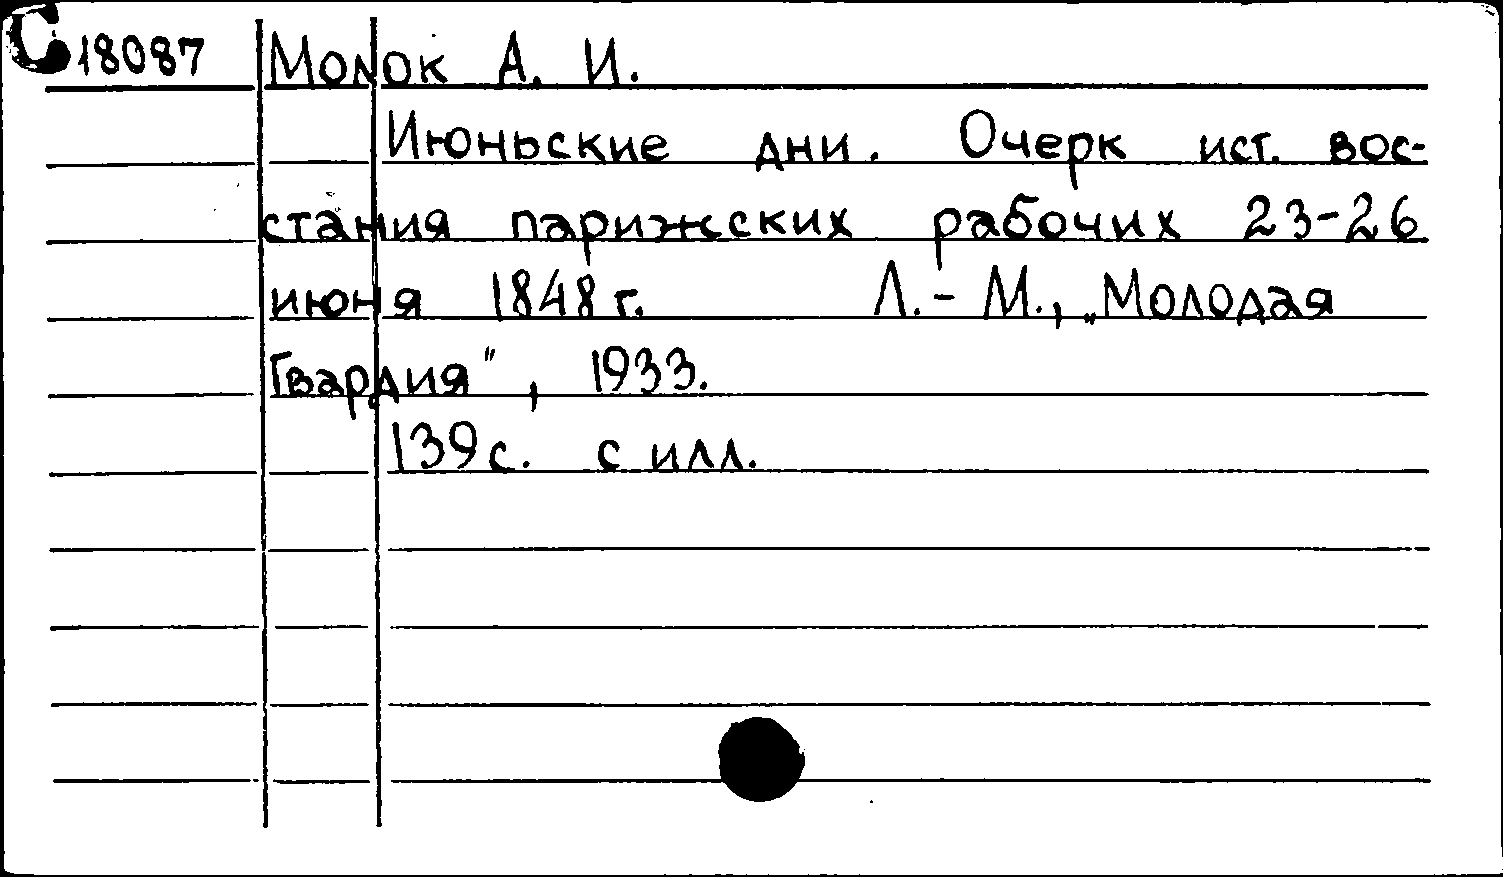 С 18087 Молок А. И.
Июньские дни. Очерк ист. вос-
стания парижских рабочих 23-26
июня 1848 г. Л.-М., „Молодая
Гвардия", 1933.
139 с. с илл.